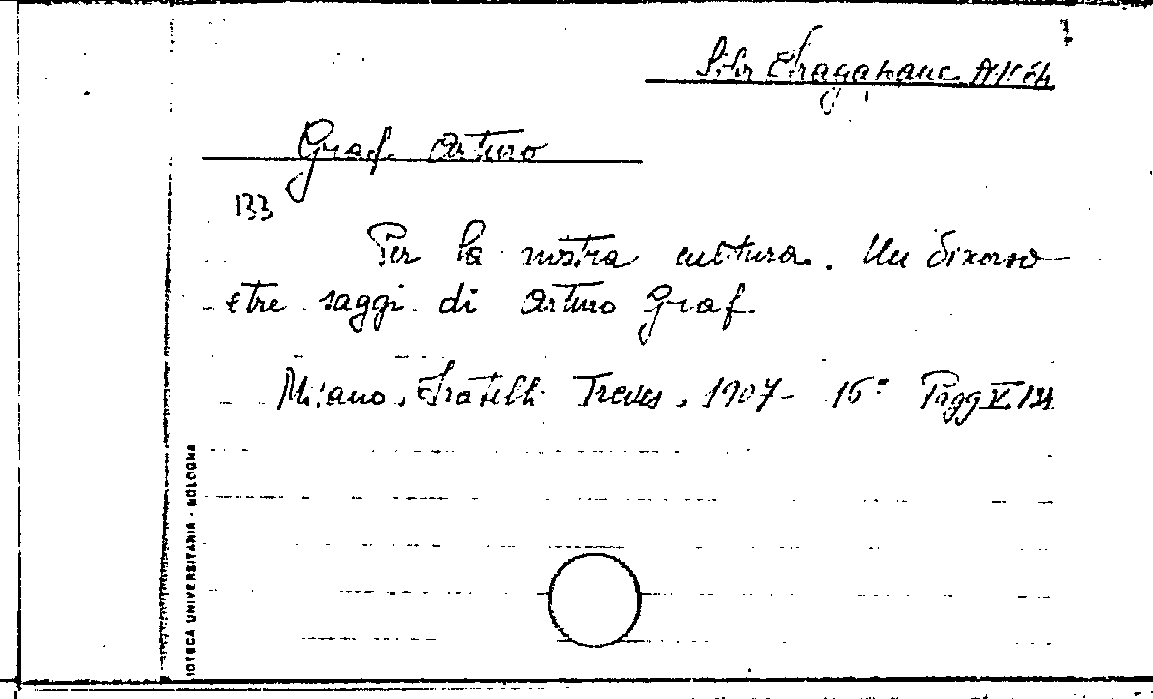 Graf Arturo
133
Per la nostra cultura. Un discorso
e tre saggi di Arturo Graf.
Milano, Fratelli Treves, 1907 - 16° Pagg V.
IOTECA UNIVERSITARIA - BOLOGNA